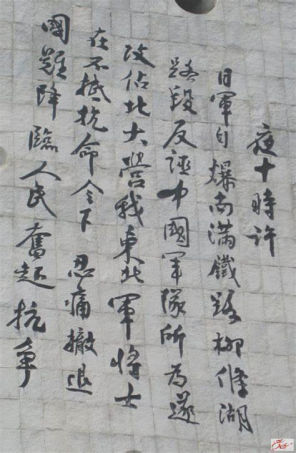 夜十時許
日軍自爆南滿鐵路柳條湖
路段反誣中國軍隊所為遂
攻佔北大營我東北軍將士
在不抵抗命令下忍痛撤退
國難降臨人民奮起抗爭